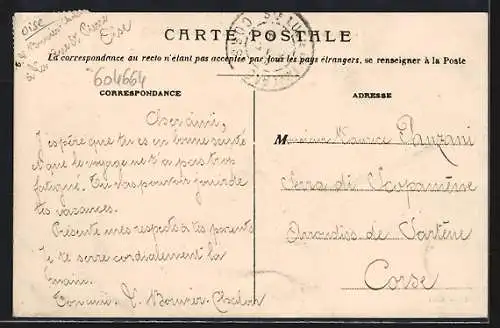 Oise
Oise
CARTE POSTALE
La correspondance au recto n'étant pas acceptée par tous les pays étrangers, se renseigner à la Poste
604664
CORRESPONDANCE
ADRESSE
Cher ami,
J'espère que tu es en bonne santé
et que le voyage ne t'a pas trop
fatigué. Tu vas pouvoir jouir de
tes vacances.
Présente mes respects à tes parents
Je te serre cordialement la
main.
Bouvier
Monsieur Maurice Panzani
Serra di Scopamène
Arrondiss de Sartène
Corse